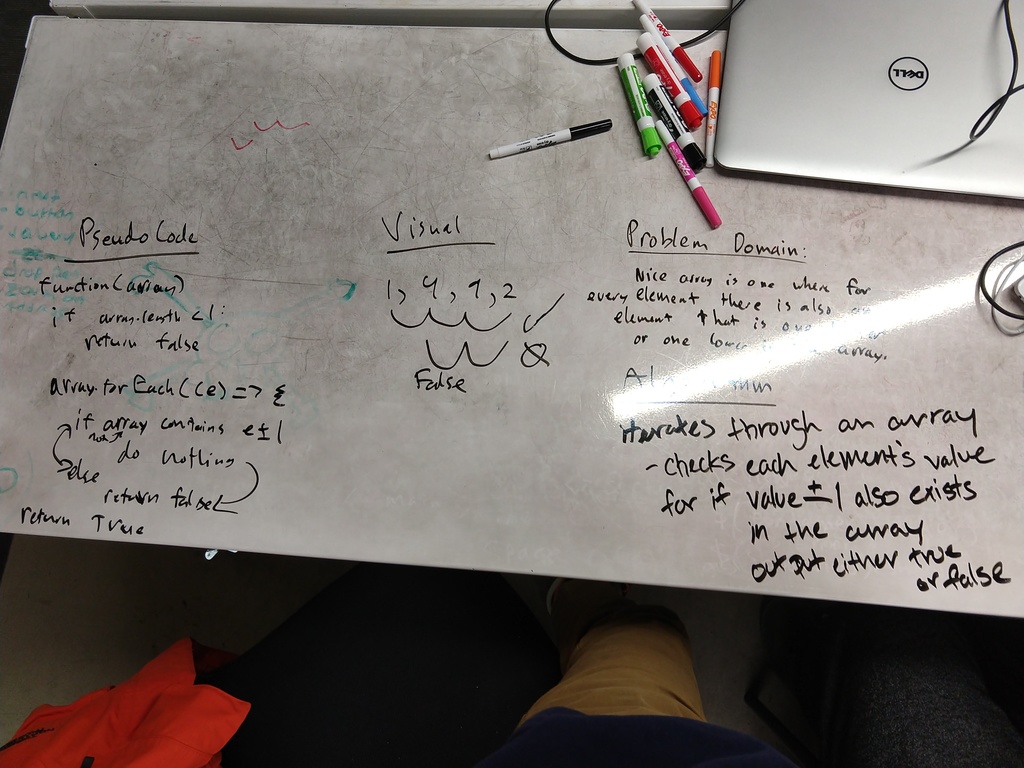 PseudoCode
function(array)
if array.length < 1:
return false
array.forEach((e) => {
if array contains e±1
not
do nothing
else
return false
return True
Visual
1, 4, 9, 2
False
Problem Domain:
Nice array is one where for
every element there is also an
element that is one
or one lower in the array.
Algorithm
iterates through an array
- checks each element's value
for if value ± 1 also exists
in the array
output either true
or false
next
button
DELL
EXPO